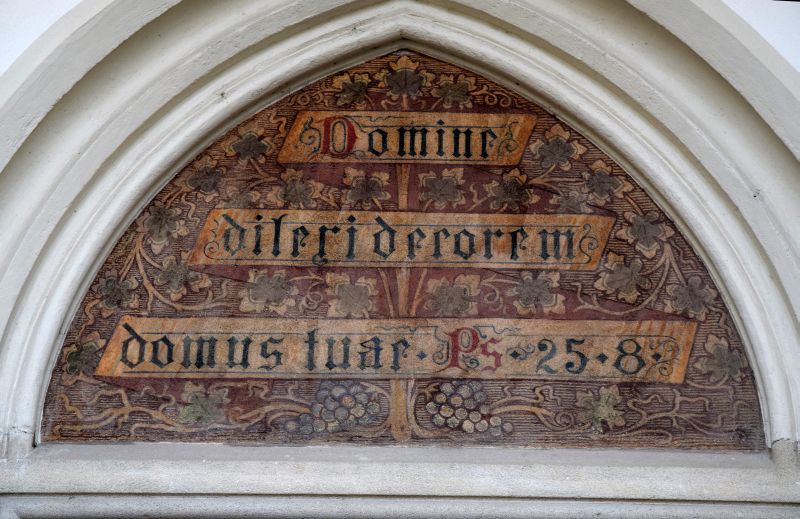 Domine
dilexi decorem
domus tuae · Ps · 25 · 8 ·